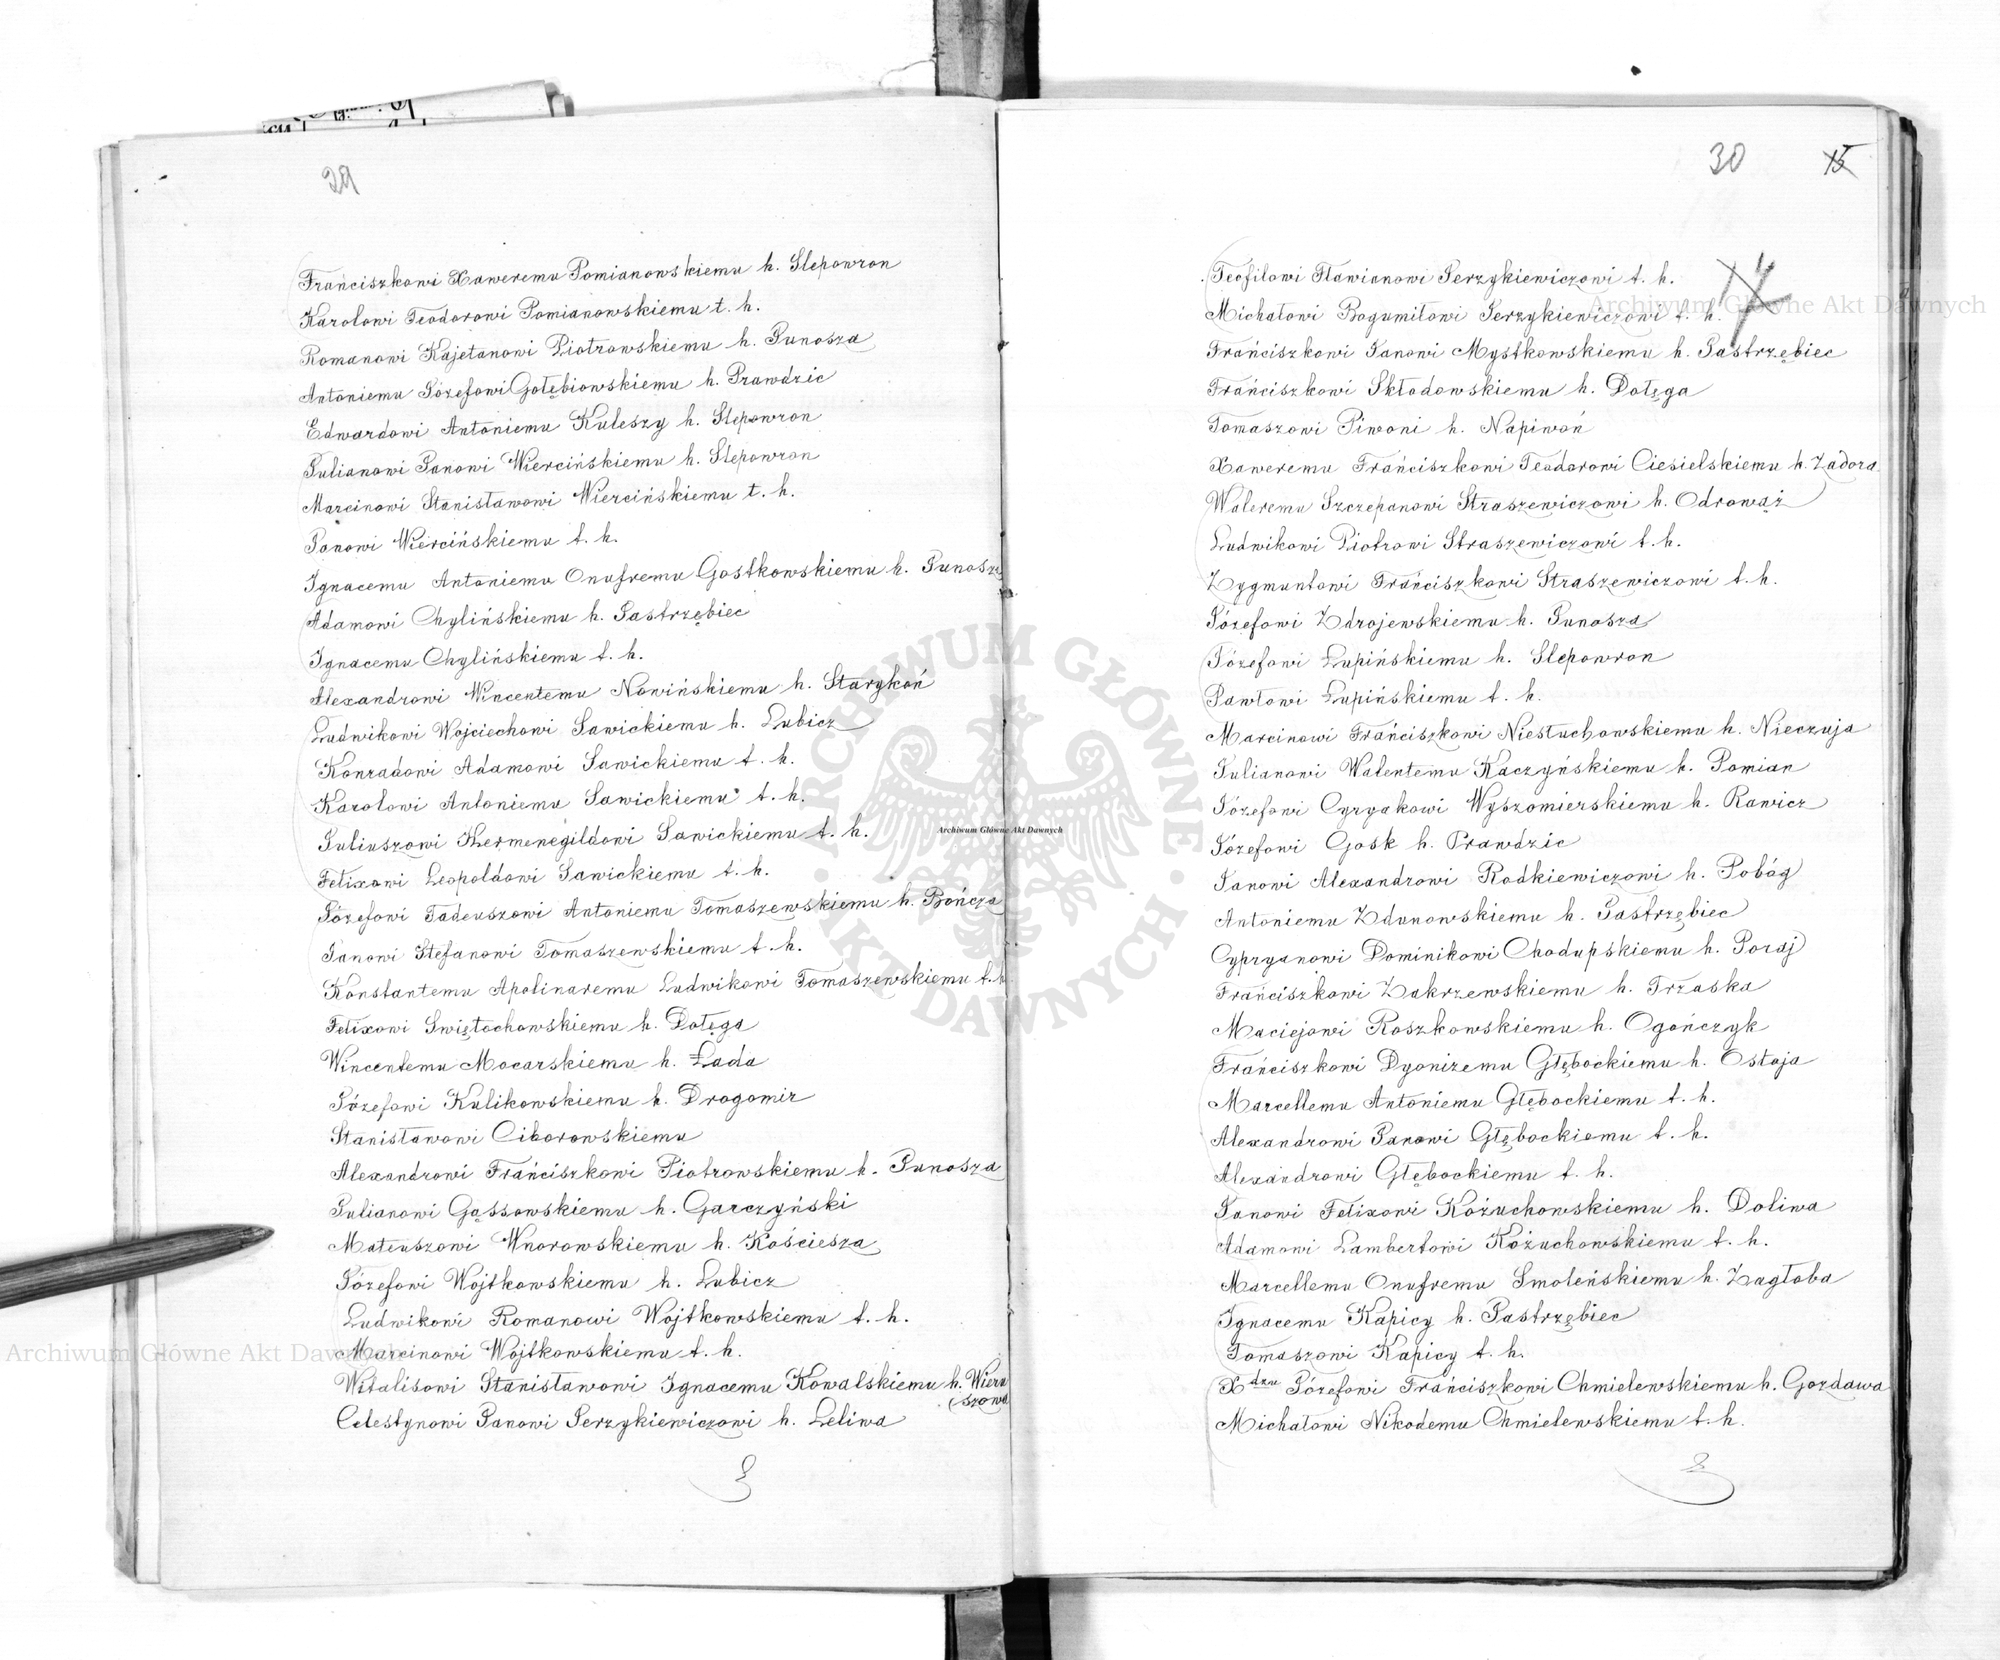 29
Franciszkowi Xaweremu Pomianowskiemu h. Slepowron
Karolowi Teodorowi Pomianowskiemu t. h.
Romanowi Kajetanowi Piotrowskiemu h. Junosza
Antoniemu Józefowi Gołębiowskiemu h. Prawdzic
Edwardowi Antoniemu Kuleszy h. Slepowron
Julianowi Janowi Wiercińskiemu h. Slepowron
Marcinowi Stanisławowi Wiercińskiemu t. h.
Janowi Wiercińskiemu t. h.
Ignacemu Antoniemu Onufremu Gostkowskiemu h. Junosza
Adamowi Chylińskiemu h. Jastrzębiec
Ignacemu Chylińskiemu t. h.
Alexandrowi Wincentemu Nowińskiemu h. Starykoń
Ludwikowi Wojciechowi Sawickiemu h. Lubicz
Konradowi Adamowi Sawickiemu t. h.
Karolowi Antoniemu Sawickiemu t. h.
Juliuszowi Hermenegildowi Sawickiemu t. h.
Felixowi Leopoldowi Sawickiemu t. h.
Józefowi Tadeuszowi Antoniemu Tomaszewskiemu h. Bończa
Janowi Stefanowi Tomaszewskiemu t. h.
Konstantemu Apolinaremu Ludwikowi Tomaszewskiemu t. h.
Felixowi Swiętochowskiemu h. Dołęga
Wincentemu Mocarskiemu h. Łada
Józefowi Kulikowskiemu h. Drogomir
Stanisławowi Ciborowskiemu
Alexandrowi Franciszkowi Piotrowskiemu h. Junosza
Julianowi Gąssowskiemu h. Garczyński
Mateuszowi Wnorowskiemu h. Kościesza
Józefowi Wojtkowskiemu h. Lubicz
Ludwikowi Romanowi Wojtkowskiemu t. h.
Marcinowi Wojtkowskiemu t. h.
Witalisowi Stanisławowi Ignacemu Kowalskiemu h. Wieru
szowa
Celestynowi Janowi Jerzykiewiczowi h. Leliwa
30 15
17
Teofilowi Flawianowi Jerzykiewiczowi t. h.
Michałowi Bogumiłowi Jerzykiewiczowi t. h.
Franciszkowi Janowi Mystkowskiemu h. Jastrzębiec
Franciszkowi Skłodowskiemu h. Dołęga
Tomaszowi Piwoni h. Napiwoń
Xaweremu Franciszkowi Teodorowi Ciesielskiemu h. Zadora
Waleremu Szczepanowi Straszewiczowi h. Odrowąż
Ludwikowi Piotrowi Straszewiczowi t. h.
Zygmuntowi Franciszkowi Straszewiczowi t. h.
Józefowi Zdrojewskiemu h. Junosza
Józefowi Łupińskiemu h. Slepowron
Pawłowi Łupińskiemu t. h.
Marcinowi Franciszkowi Niesłuchowskiemu h. Nieczuja
Julianowi Walentemu Kaczyńskiemu h. Pomian
Józefowi Cyryakowi Wyszomierskiemu h. Rawicz
Józefowi Gosk h. Prawdzic
Janowi Alexandrowi Rodkiewiczowi h. Pobóg
Antoniemu Zdunowskiemu h. Jastrzębiec
Cypryanowi Dominikowi Chodupskiemu h. Poraj
Franciszkowi Zakrzewskiemu h. Trzaska
Maciejowi Roszkowskiemu h. Ogończyk
Franciszkowi Dyonizemu Głębockiemu h. Ostoja
Marcellemu Antoniemu Głębockiemu t. h.
Alexandrowi Janowi Głębockiemu t. h.
Alexandrowi Głębockiemu t. h.
Janowi Felixowi Kożuchowskiemu h. Doliwa
Adamowi Lambertowi Kożuchowskiemu t. h.
Marcellemu Onufremu Smoleńskiemu h. Zagłoba
Ignacemu Kapicy h. Jastrzębiec
Tomaszowi Kapicy t. h.
Xdzu Józefowi Franciszkowi Chmielewskiemu h. Gozdawa
Michałowi Nikodemu Chmielewskiemu t. h.
ARCHIWUM GŁÓWNE AKT DAWNYCH
Archiwum Główne Akt Dawnych
Archiwum Główne Akt Dawnych
Archiwum Główne Akt Dawnych